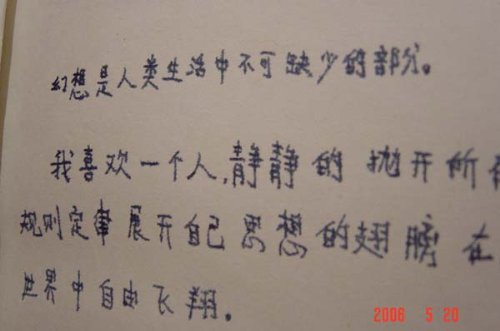 幻想是人类生活中不可缺少的部分。
我喜欢一个人,静静的 抛开所有
规则定律 展开自己 思想的翅膀 在
世界中自由飞翔。
2006 5 20